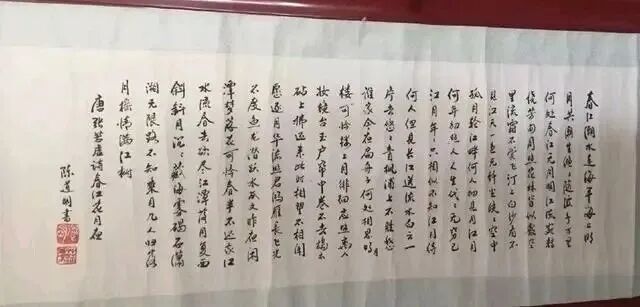 春江潮水连海平海上明
月共潮生滟滟随波千万里
何处春江无月明江流宛转
绕芳甸月照花林皆似霰空
里流霜不觉飞汀上白沙看不
见江天一色无纤尘皎皎空中
孤月轮江畔何人初见月江月
何年初照人人生代代无穷已
江月年年只相似不知江月待
何人但见长江送流水白云一
片去悠悠青枫浦上不胜愁
谁家今夜扁舟子何处相思明月
楼可怜楼上月徘徊应照离人
妆镜台玉户帘中卷不去捣衣
砧上拂还来此时相望相闻
愿逐月华流照君鸿雁长飞光
不度鱼龙潜跃水成文昨夜闲
潭梦落花可怜春半不还家江
水流春去欲尽江潭落月复西
斜斜月沉沉藏海雾碣石潇
湘无限路不知乘月几人归落
月摇情满江树
唐张若虚诗春江花月夜
陈道明书